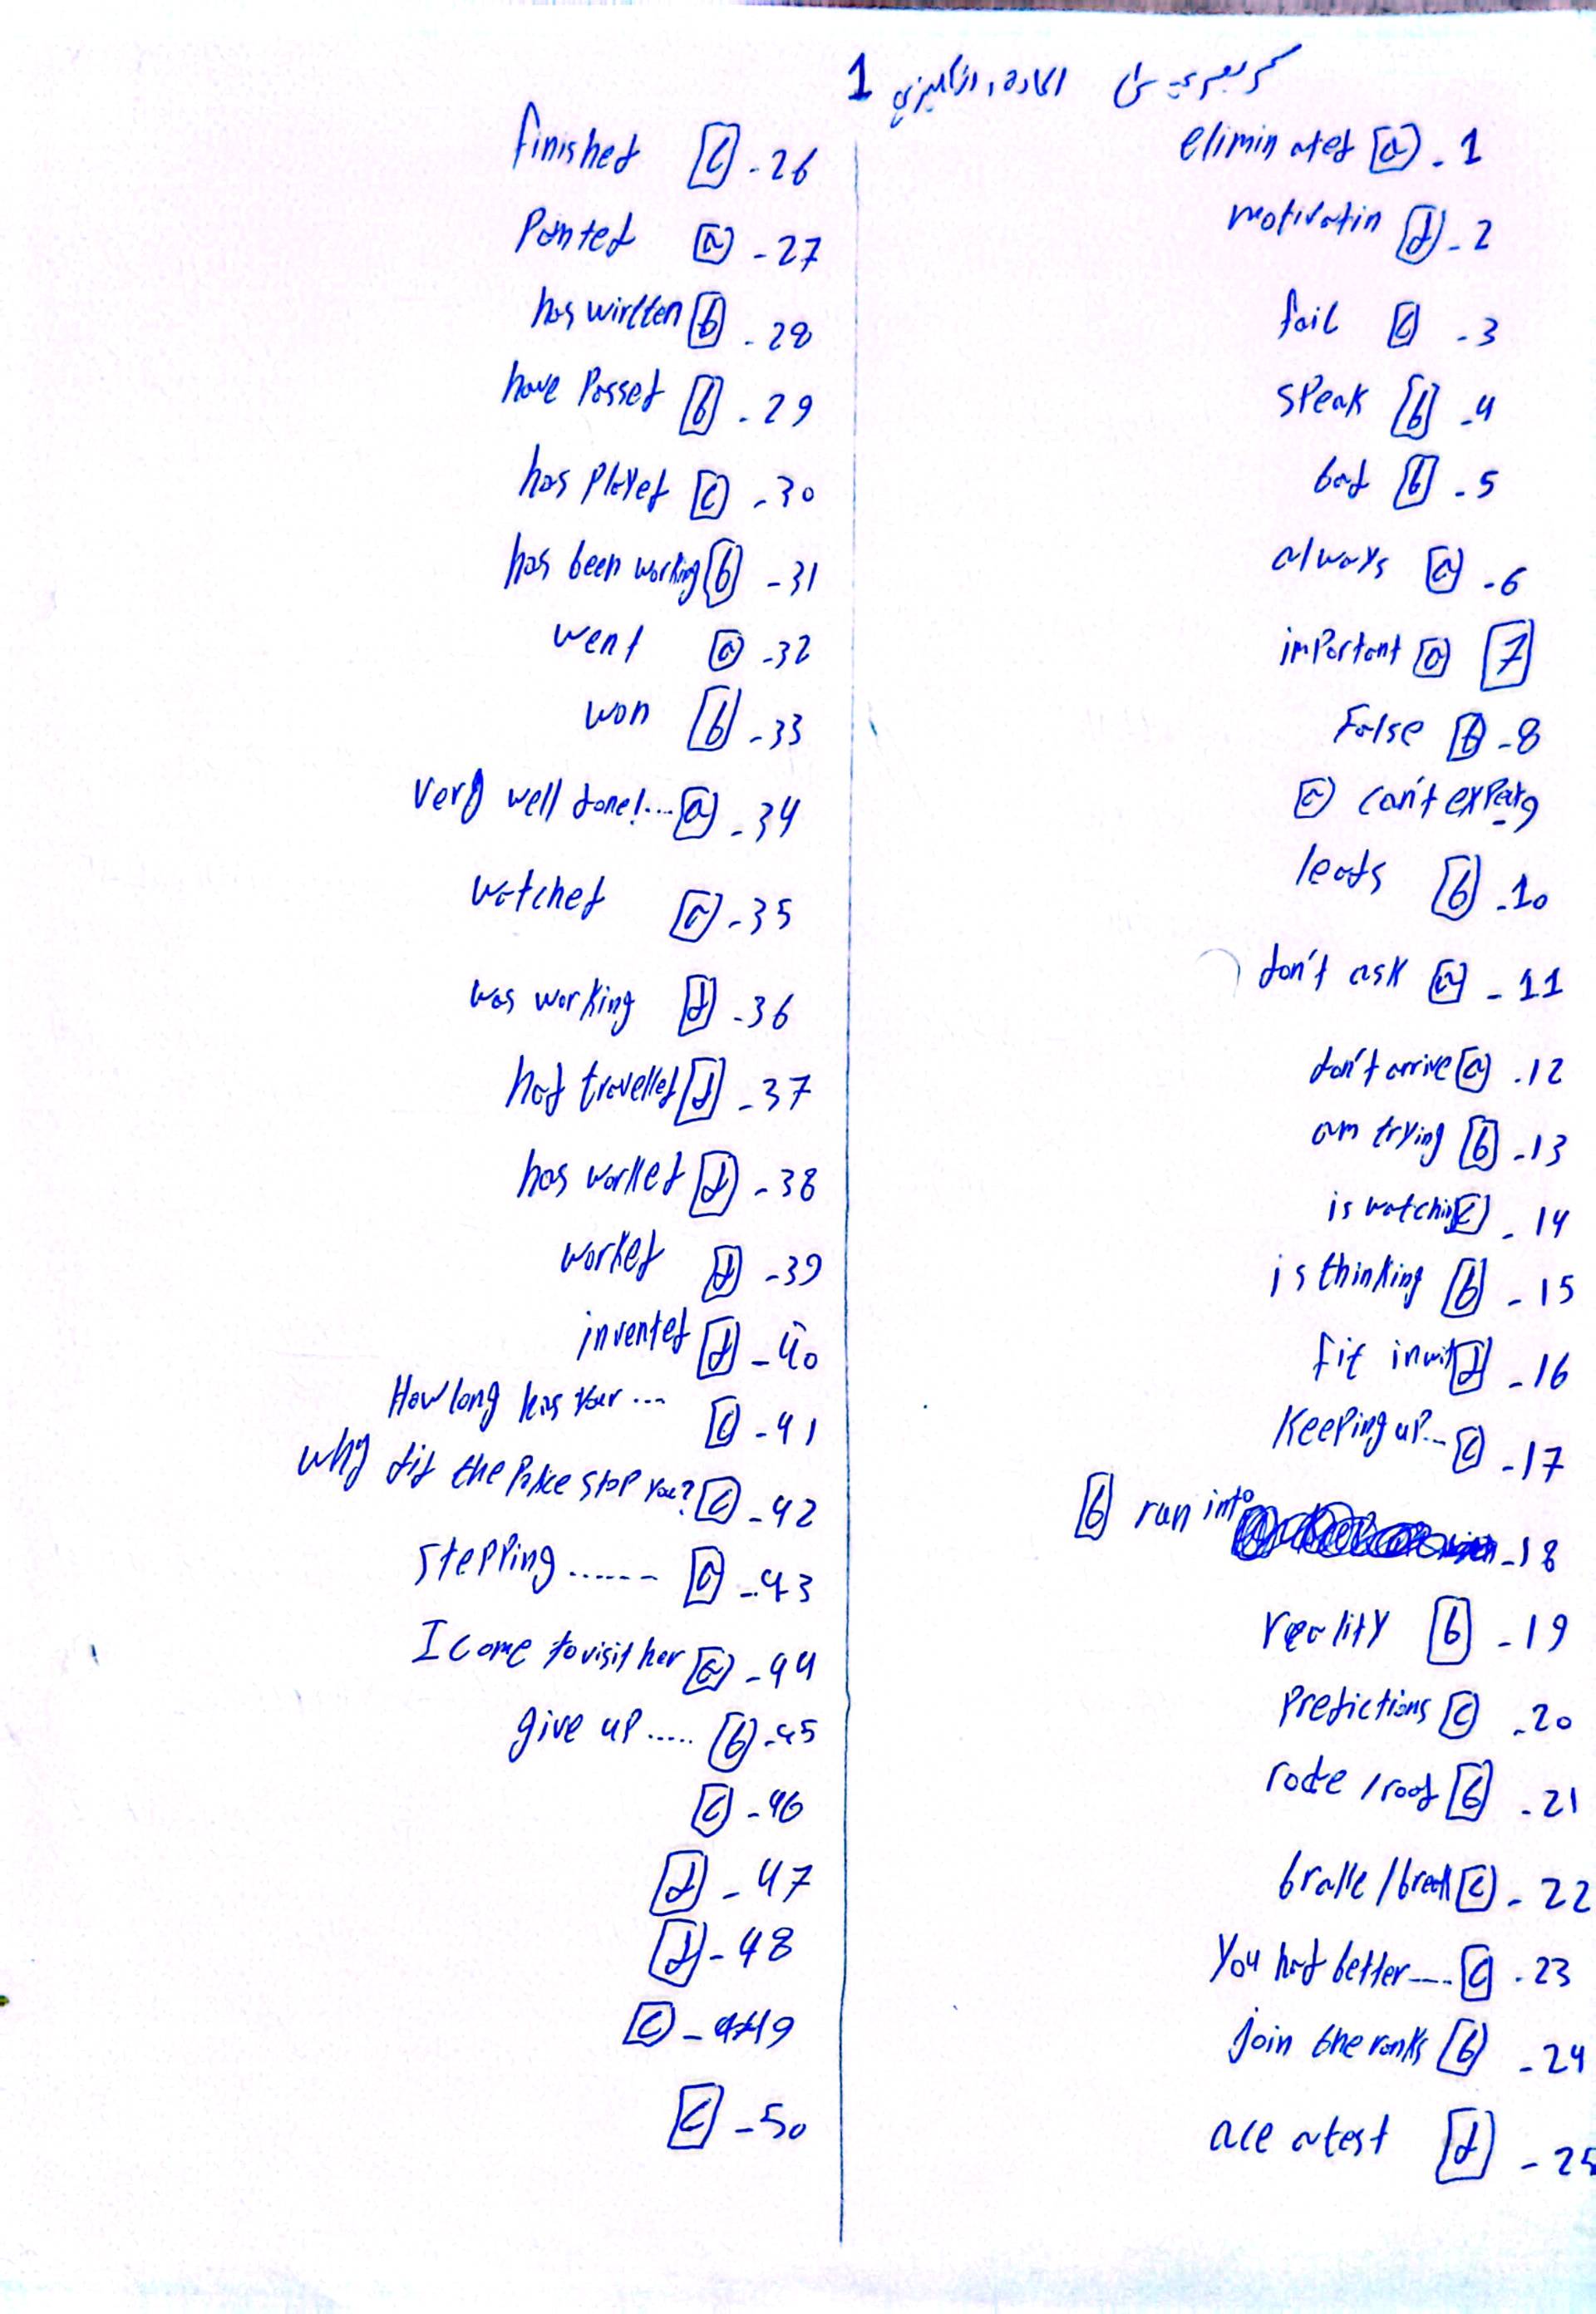 1
eliminated [a] - 1
motivatin [d] - 2
fail [c] - 3
speak [b] - 4
bad [b] - 5
always [a] - 6
important [a] [7]
False [b] - 8
[a] can't expect - 9
leads [b] - 10
don't ask [a] - 11
don't arrive [a] - 12
am trying [b] - 13
is watching [c] - 14
is thinking [b] - 15
fit in wit [d] - 16
keeping up... [c] - 17
[b] run into - 18
reality [b] - 19
predictions [c] - 20
rode / road [b] - 21
brake / break [c] - 22
You had better.... [c] - 23
join the ranks [b] - 24
ace a test [d] - 25
finished [c] - 26
Painted [a] - 27
has wirtten [b] - 28
have passed [b] - 29
has played [c] - 30
has been working [b] - 31
went [a] - 32
won [b] - 33
Very well done!... [a] - 34
watched [a] - 35
was working [d] - 36
had travelled [d] - 37
has worked [d] - 38
worked [d] - 39
invented [d] - 40
How long has your ... [c] - 41
why did the Police stop you? [c] - 42
stepping ...... [a] - 43
I come to visit her [a] - 44
give up ..... [b] - 45
[c] - 46
[d] - 47
[d] - 48
[c] - 49
[c] - 50